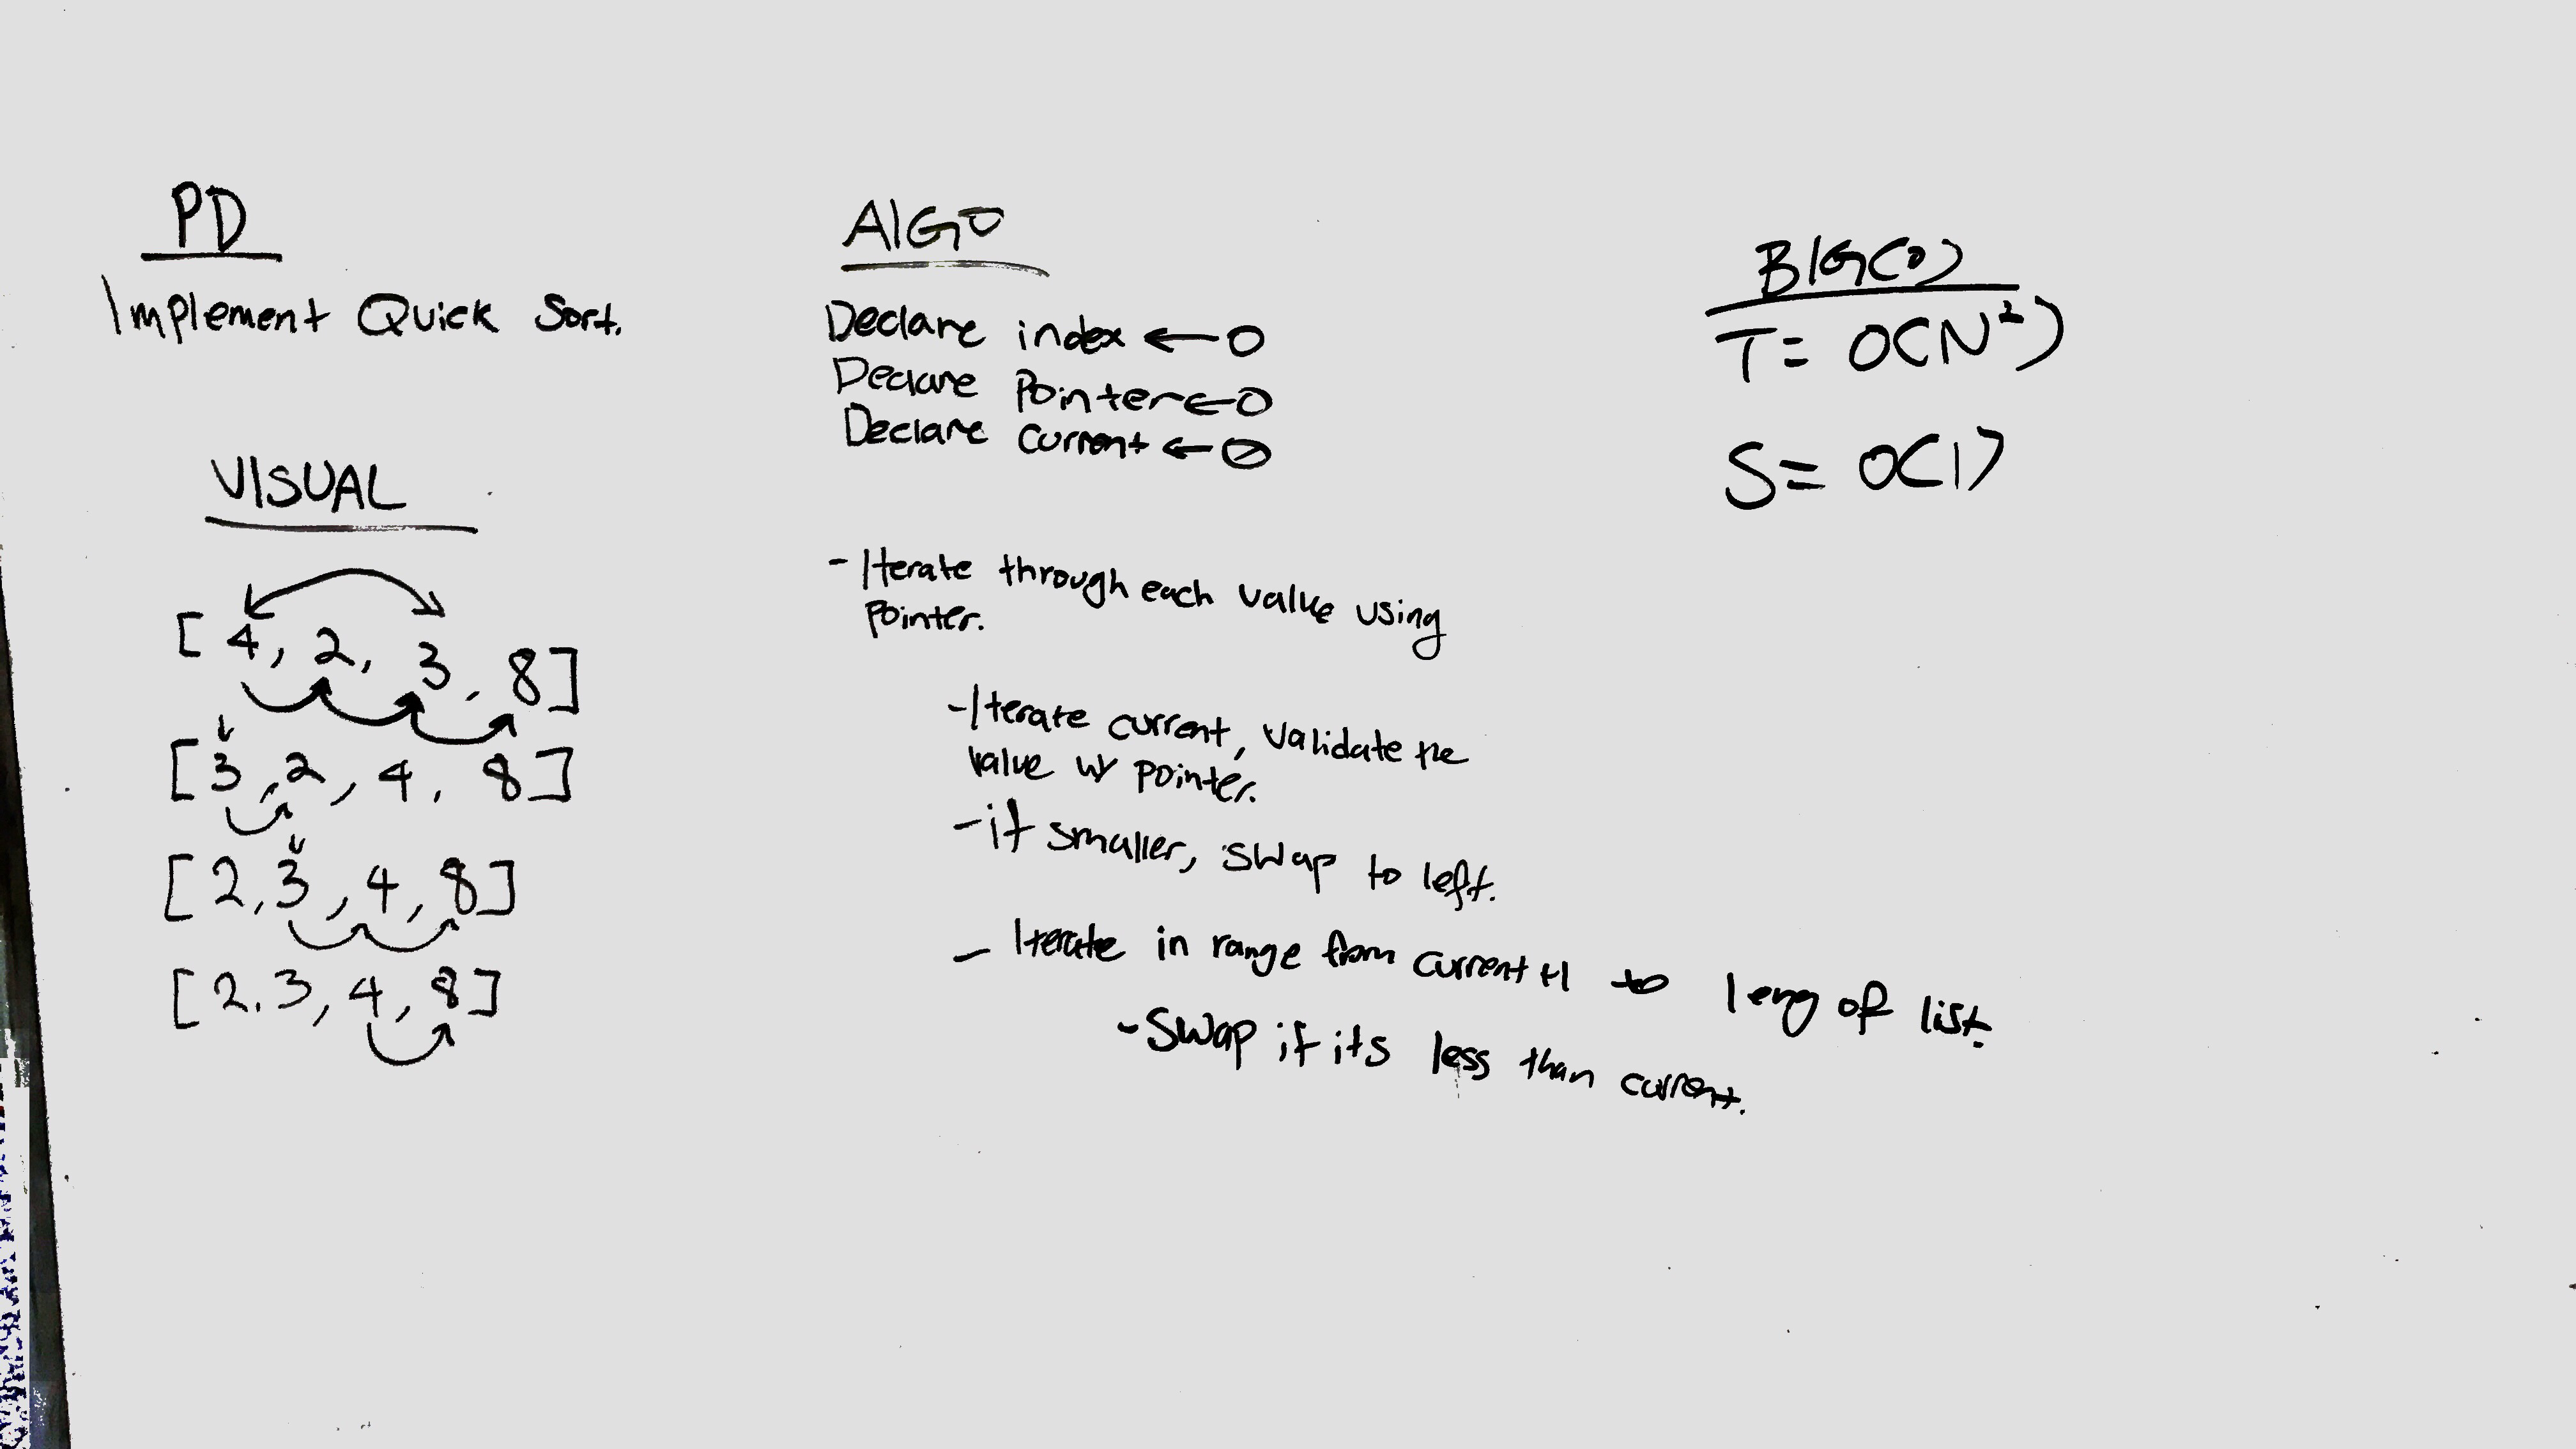 PD
Implement Quick Sort.
VISUAL
[4, 2, 3, 8]
[3, 2, 4, 8]
[2, 3, 4, 8]
[2.3, 4, 8]
AlGO
Declare index ← 0
Declare Pointer ← 0
Declare current ← 0
- Iterate through each value using
Pointer.
- Iterate current, validate the
value w/ pointer.
- if smaller, swap to left.
- Iterate in range from current +1 to leng of list.
- Swap if its less than current.
BIG(O)
T = O(N²)
S = O(1)